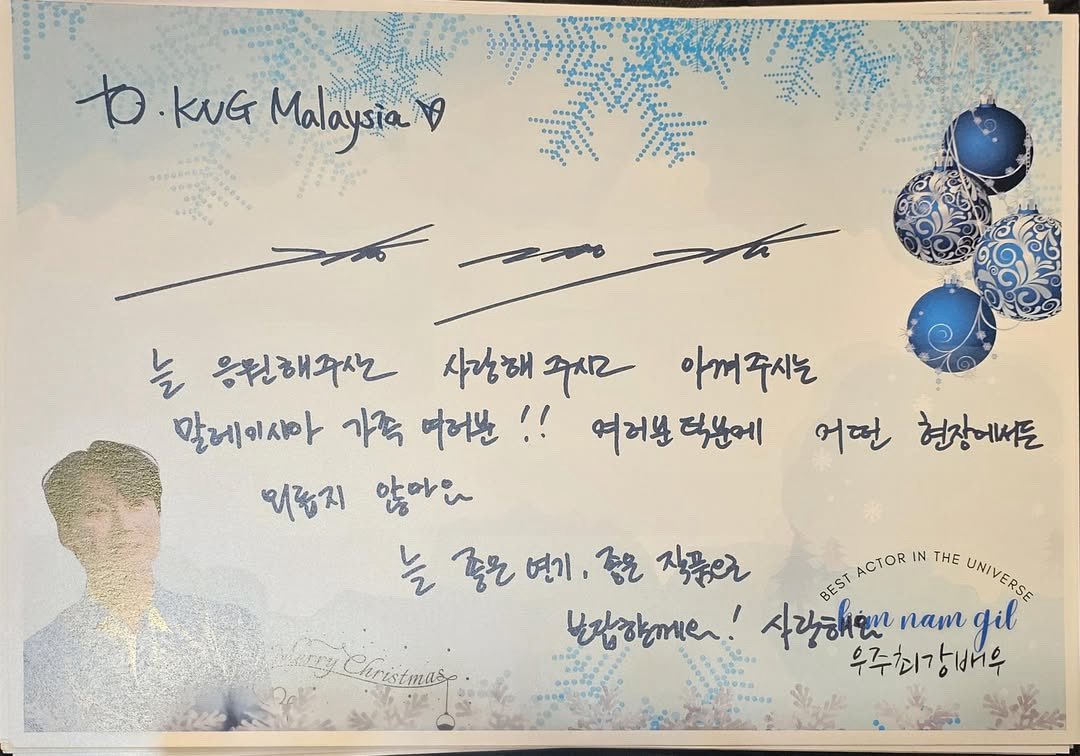 to. KNG Malaysia ♡
늘 응원해주시는 사랑해 주시고 아껴주시는
말레이시아 가족 여러분!! 여러분 덕분에 어떤 현장에서든
외롭지 않아요
늘 좋은 연기, 좋은 작품으로
보답할께요! 사랑해요
BEST ACTOR IN THE UNIVERSE
kim nam gil
우주최강배우
Merry Christmas